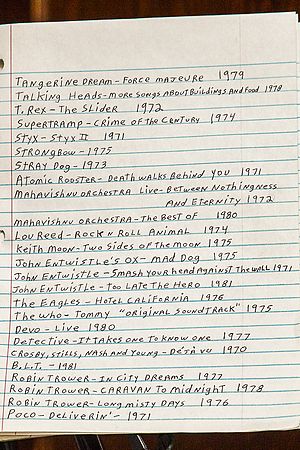 Tangerine Dream - Force Majeure 1979
Talking Heads - More Songs About Buildings And Food 1978
T. Rex - The Slider 1972
Supertramp - Crime of the Century 1974
Styx - Styx II 1971
Strongbow - 1975
Stray Dog - 1973
Atomic Rooster - Death Walks Behind You 1971
Mahavishnu Orchestra Live - Between Nothingness
And Eternity 1972
Mahavishnu Orchestra - The Best of 1980
Lou Reed - Rock n Roll Animal 1974
Keith Moon - Two Sides of the Moon 1975
John Entwistle's Ox - Mad Dog 1975
John Entwistle - Smash your Head Against The Wall 1971
John Entwistle - Too Late The Hero 1981
The Eagles - Hotel California 1976
The Who - Tommy "Original Soundtrack" 1975
Devo - Live 1980
Detective - It Takes One To Know One 1977
Crosby, Stills, Nash and Young - Déjà vu 1970
B.L.T. - 1981
Robin Trower - In City Dreams 1977
Robin Trower - Caravan To Midnight 1978
Robin Trower - Long Misty Days 1976
Poco - Deliverin' - 1971